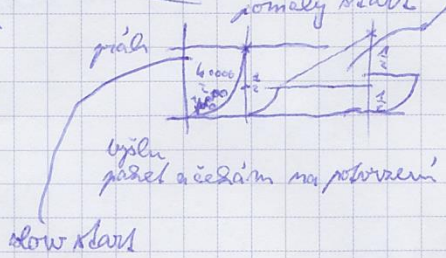 pomalý start
práh
1/2
1/2
1/2
vyšlu
paket a čekám na potvrzení
slow start